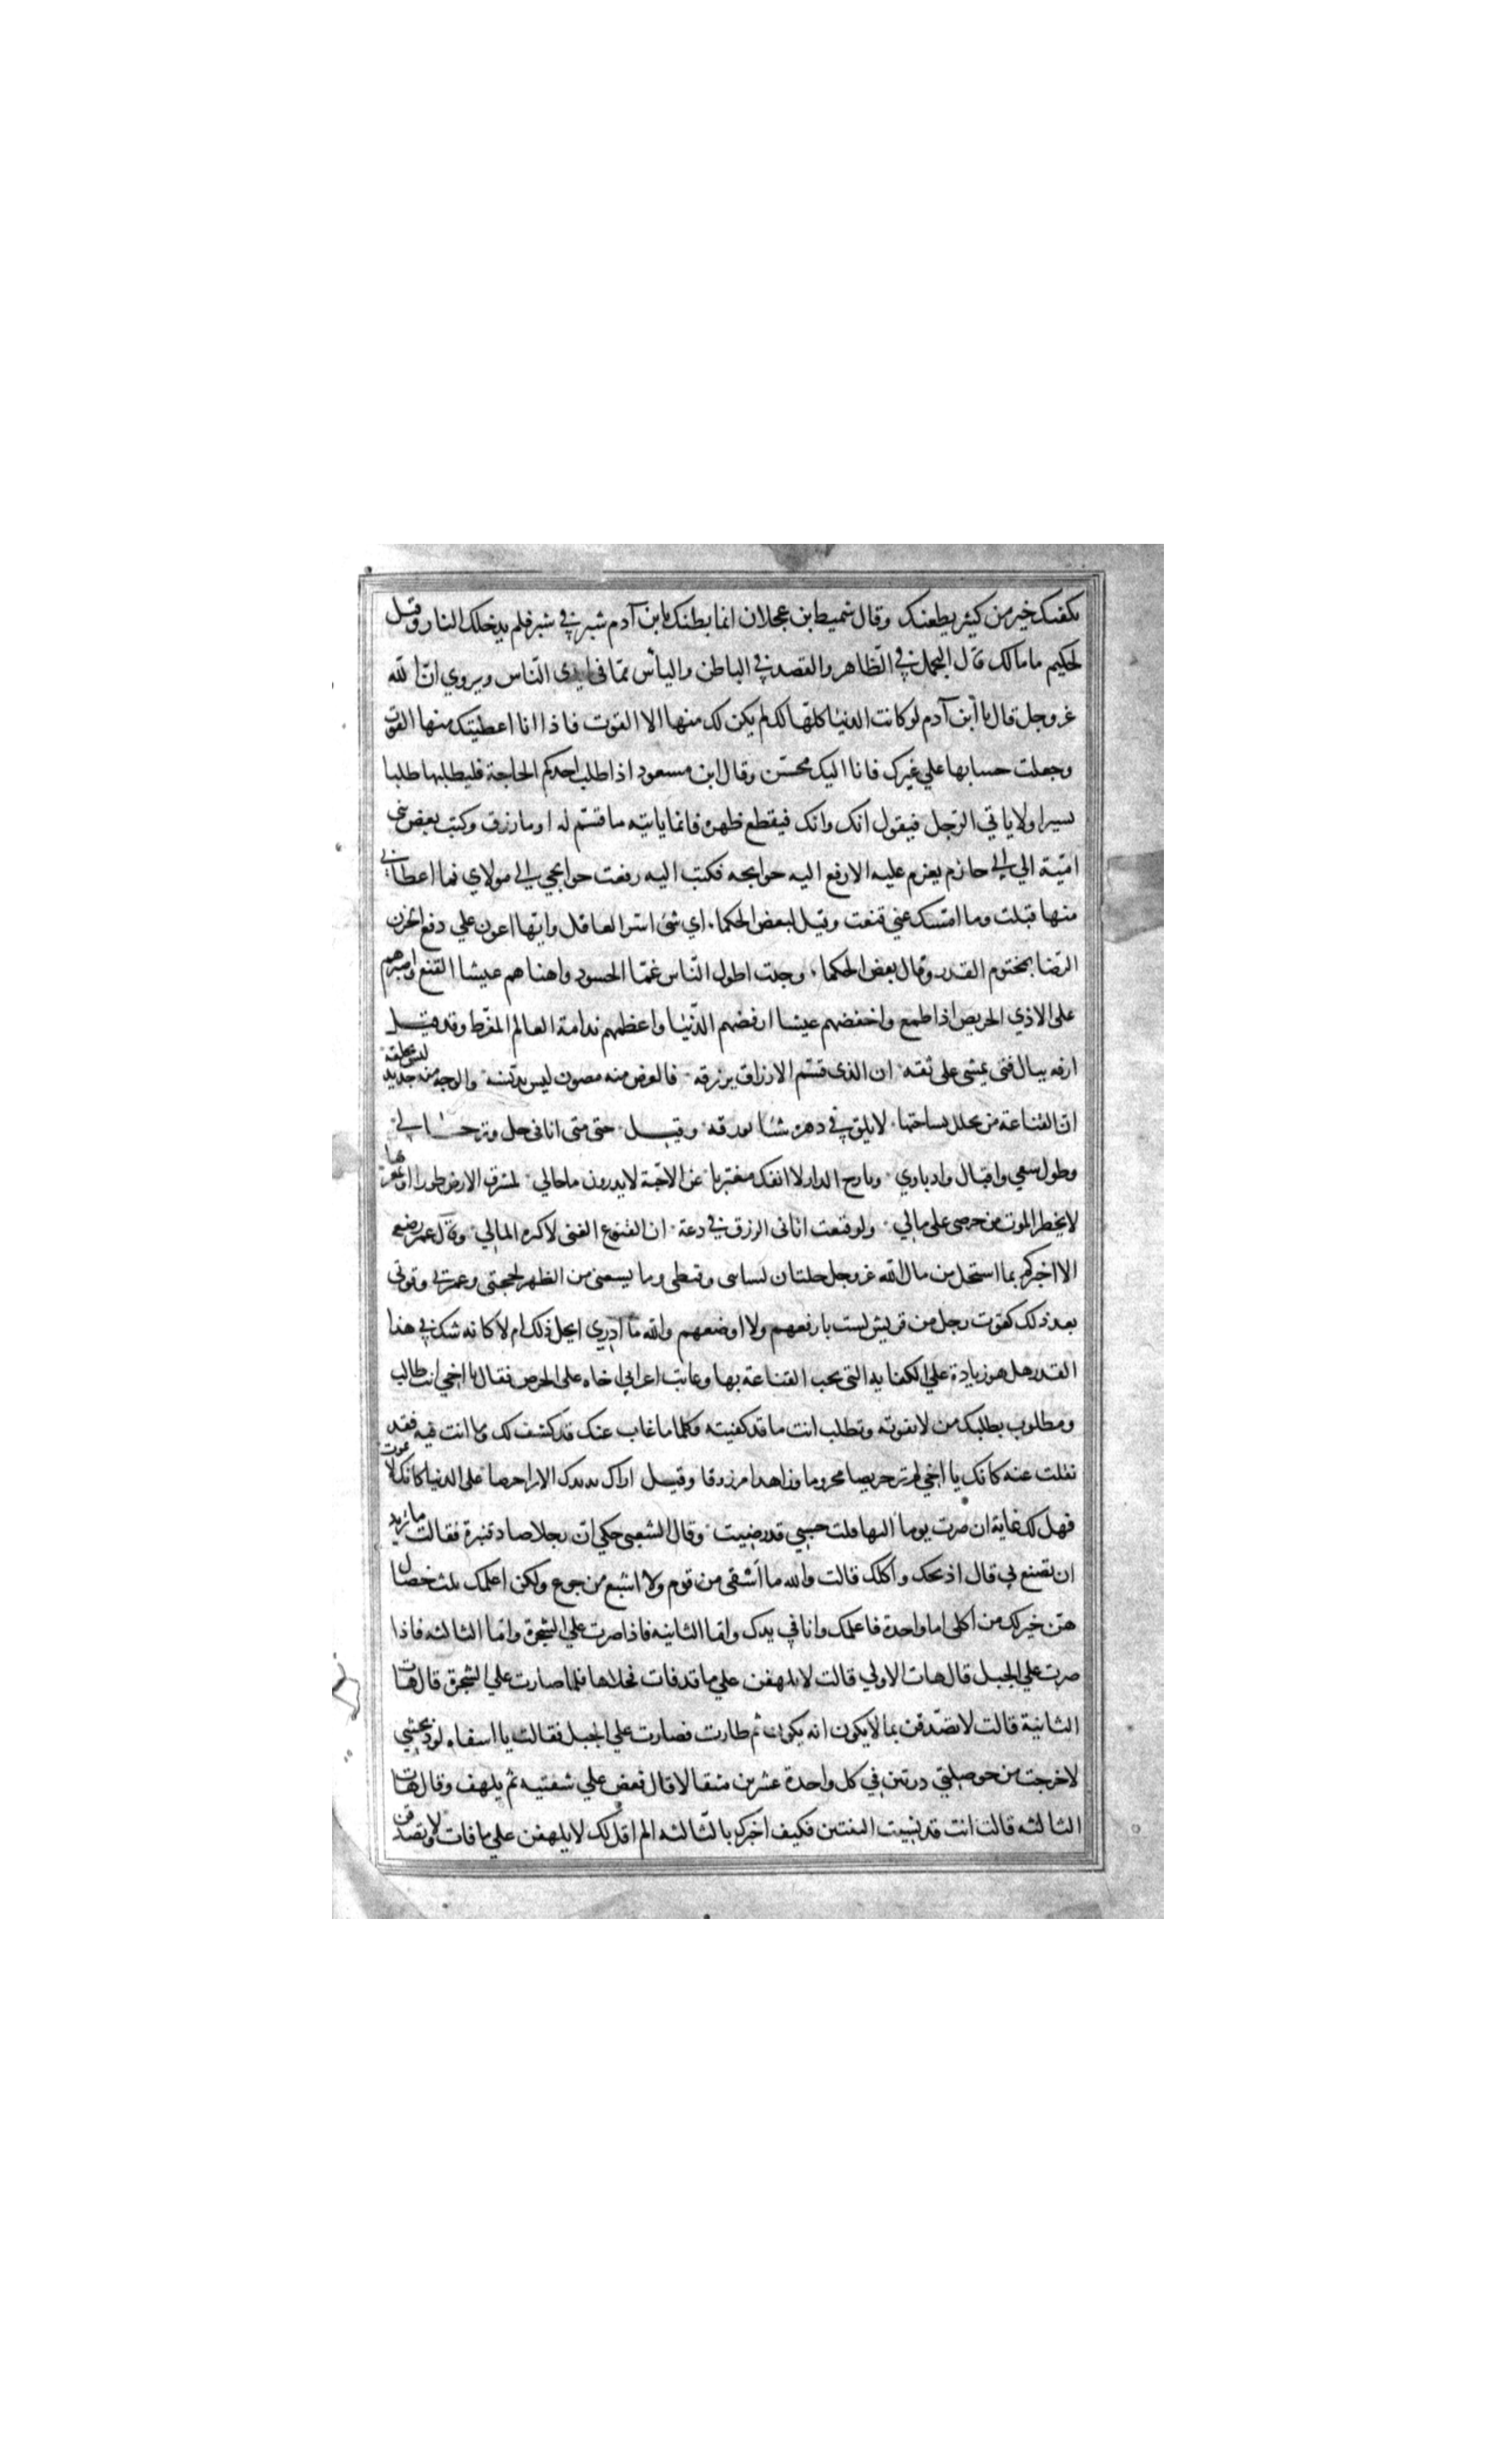 يكفيك خير من كثير يطغيك وقال شميط ابن عجلان انما بطنك يا ابن آدم شبر في شبر فلم يدخلك النار وقيل
لحكيم ما مالك قال التجمل في الظاهر والقصد في الباطن والياس مما في ايدي الناس ويروي ان الله
عز وجل قال يا ابن آدم لو كانت الدنيا كلها لك لم يكن لك منها الا القوت فاذا انا اعطيتك منها القوت
وجعلت حسابها علي غيرك فانا اليك محسن وقال ابن مسعود اذا طلب احدكم الحاجة فليطلبها طلبا
يسيرا ولا ياتي الرجل فيقول انك وانك فيقطع ظهره فانما ياتيه ما قسم له او ما رزق وكتب بعض بني
امية الي ابي حازم يعزم عليه الا رفع اليه حوايجه فكتب اليه رفعت حوايجي الي مولاي فما اعطاني
منها قبلت وما امسك عني قنعت وقيل لبعض الحكما اي شئ اسر للعاقل وايها اعون علي دفع الحزن
الرضا بمحتوم القدر وقال بعض الحكما وجدت اطول الناس غما الحسود واهناهم عيشا القنع واصبرهم
علي الاذي الحريص اذا طمع واخفضهم عيشا ارفضهم للدنيا واعظمهم ندامة العالم المفرط وقد قيل
ارفه ببال فتي يمشي علي ثقه ان الذي قسم الارزاق يرزقه فالعرض منه مصون ليس يدنسه والوجه منه جديد ليس يخلقه
ان القناعة من يحلل بساحتها لا يلق في دهره شئا يورقه وقيل حتي متي انا في حل وترحال
وطول سعي وادبار واقبال ونازح الدار لا انفك مغتربا عن الاحبة لا يدرون ما حالي بمشرق الارض طورا او بمغربها
لا يخطر الموت من حرصي علي بالي ولو قنعت اتاني الرزق في دعة ان القنوع الغني لا كثرة المالي وقال عمر رضع
الا اخبركم بما استحل من مال الله عز وجل حلتان لشتاي وقيظي وما يسعني من الظهر لحجتي وعمرتي وقوتي
بعد ذلك كقوت رجل من قريش لست بارفعهم ولا اوضعهم والله ما ادري ايحل ذلك ام لا كانه شك في هذا
القدر هل هو زيادة علي الكفاية التي يجب القناعة بها وعاتب اعرابي اخاه علي الحرص فقال يا اخي انت طالب
ومطلوب يطلبك من لا تفوته وتطلب انت ما قد كفيته فكلما غاب عنك قد كشف لك وما انت فيه فقد
نقلت عنه كانك يا اخي لم تر حريصا محروما وزاهدا مرزوقا وقيل اراك يزيدك الاثرا حرصا علي الدنيا كانك لا تموت
فهل لك غاية ان صرت يوما اليها قلت حسبي قد رضيت وقال الشعبي حكي ان رجلا صاد قنبرة فقالت ما تريد
ان تصنع بي قال اذبحك واكلك قالت والله ما اشفي من قرم ولا اشبع من جوع ولكن اعلمك ثلث خصال
هن خير لك من اكلي اما واحدة فاعلمك وانا في يدك واما الثانيه فاذا صرت علي الشجرة واما الثالثه فاذا
صرت علي الجبل قال هات الاولي قالت لا تلهفن علي ما قد فات فخلاها فلما صارت علي الشجرة قال هات
الثانية قالت لا تصدقن بما لا يكون انه يكون ثم طارت فصارت علي الجبل فقالت يا اسفاه لو ذبحتني
لاخرجت من حوصلتي درتين في كل واحدة عشرين مثقالا قال فعض علي شفتيه ثم يلهف وقال هات
الثالثه قالت انت قد نسيت الثنتين فكيف اخبرك بالثالثه الم اقل لك لا يلهفن علي ما فات ولا تصدقن